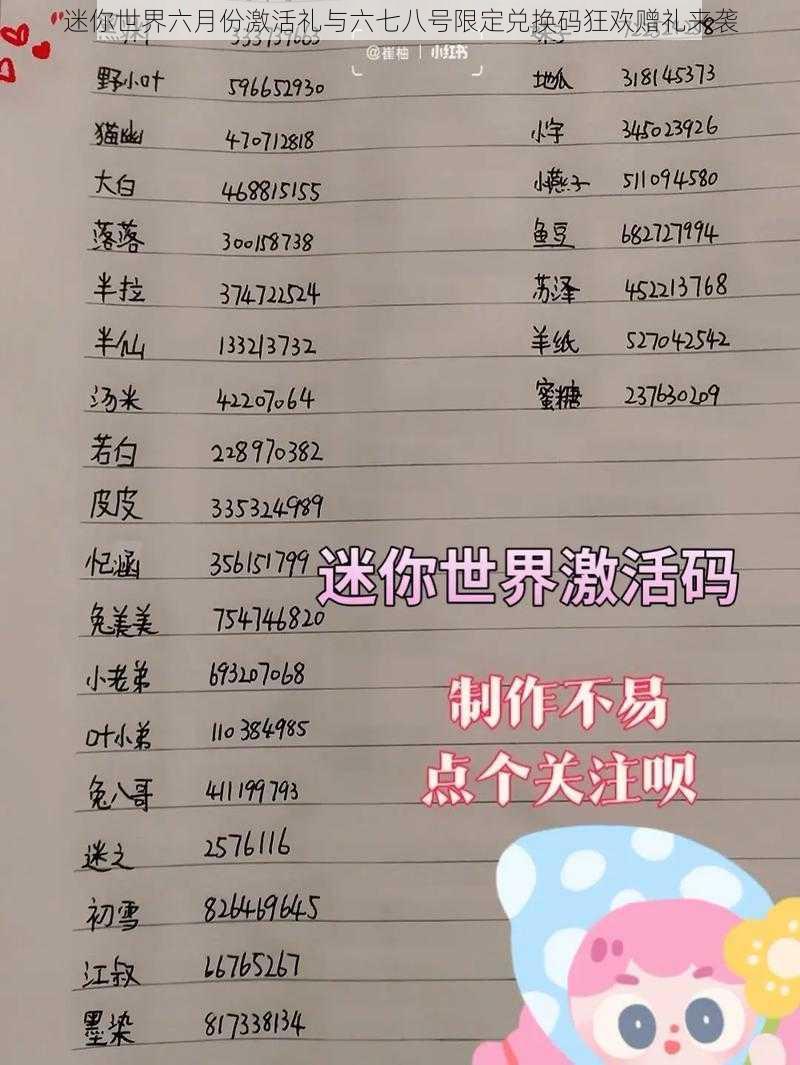 迷你世界六月份激活礼与六七八号限定兑换码狂欢赠礼来袭
@崔柚 | 小红书
野小叶 596652930
地瓜 318145373
猫幽 470712818
小字 345023926
大白 468815155
小燕子 511094580
落落 300158738
鱼豆 682727994
半拉 374722524
苏泽 452213768
半仙 133213732
羊纸 527042542
汤米 42207064
蜜糖 237630209
若白 228970382
皮皮 335324989
忆涵 356151799
迷你世界激活码
兔美美 754746820
小老弟 693207068
制作不易
叶小弟 110384985
点个关注呗
兔八哥 411199793
迷之 2576116
初雪 826469645
江叔 66765267
墨染 817338134